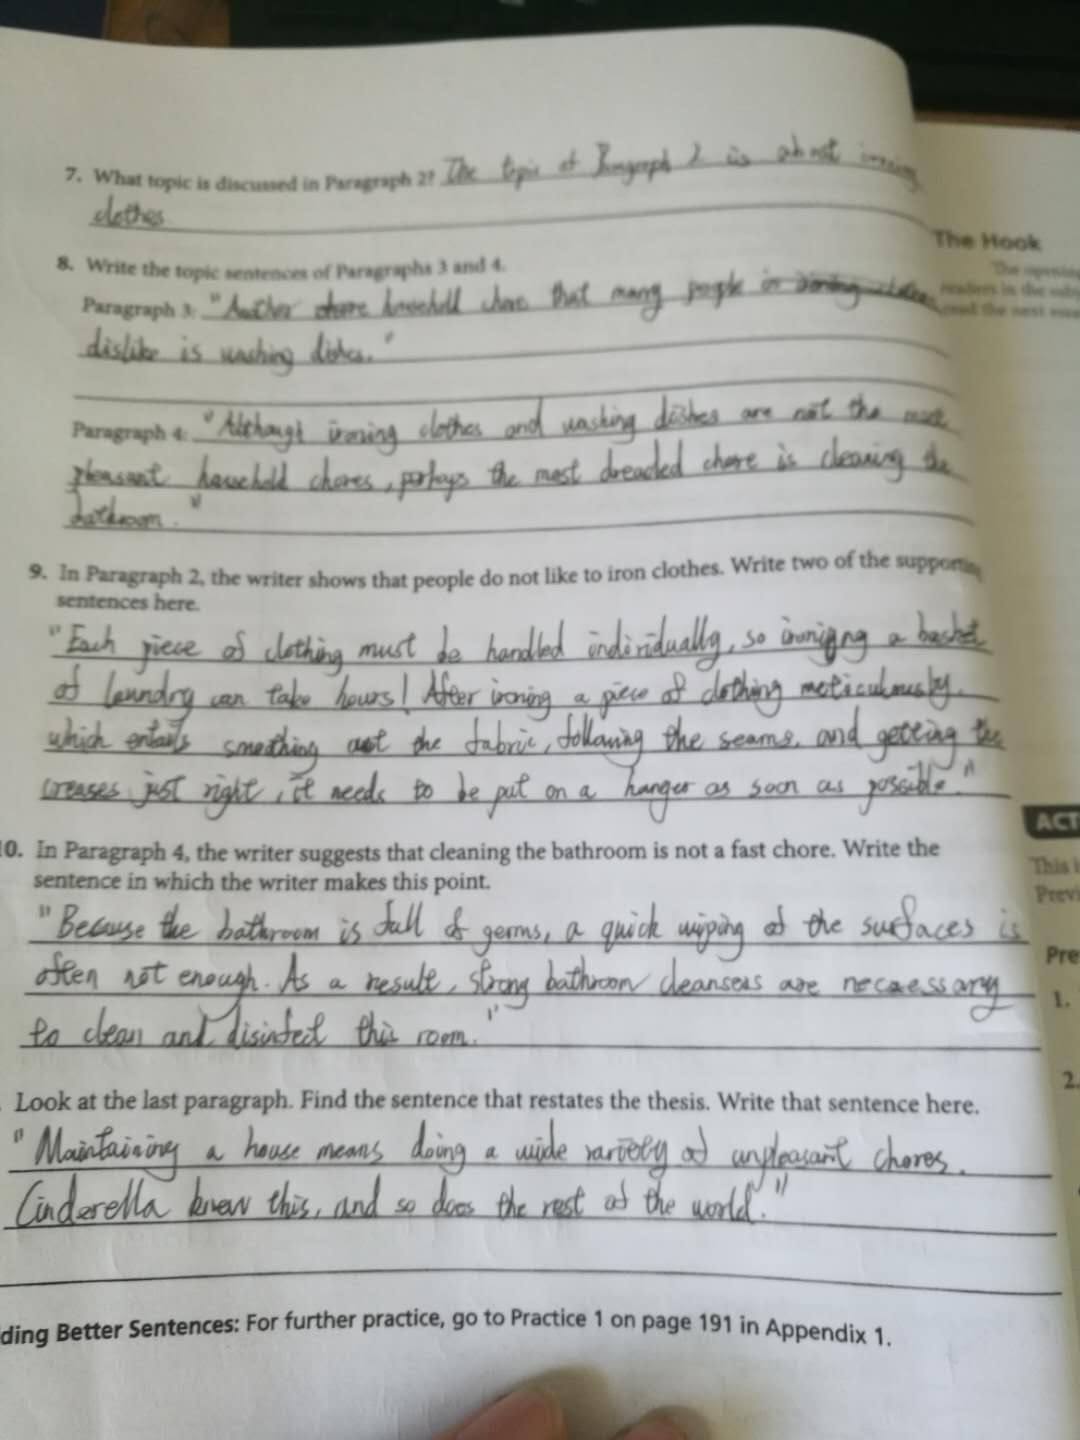 7. What topic is discussed in Paragraph 2? The topic of Paragraph 2 is about ironing
clothes
The Hook
8. Write the topic sentences of Paragraphs 3 and 4.
The opening
Paragraph 3: "Another chore household chore that many people in
readers in the
read the next
dislike is washing dishes."
Paragraph 4: "Although ironing clothes and washing dishes are not the most
pleasant household chores, perhaps the most dreaded chore is cleaning the
bathroom."
9. In Paragraph 2, the writer shows that people do not like to iron clothes. Write two of the supporting
sentences here.
"Each piece of clothing must be handled individually, so ironing a basket
of laundry can take hours! After ironing a piece of clothing meticulously,
which entails smoothing out the fabric, following the seams, and getting the
creases just right, it needs to be put on a hanger as soon as possible."
ACT
10. In Paragraph 4, the writer suggests that cleaning the bathroom is not a fast chore. Write the
sentence in which the writer makes this point.
This i
Previ
"Because the bathroom is full of germs, a quick wiping of the surfaces is
Pre
often not enough. As a result, strong bathroom cleansers are necessary
1.
to clean and disinfect this room."
2.
Look at the last paragraph. Find the sentence that restates the thesis. Write that sentence here.
"Maintaining a house means doing a wide variety of unpleasant chores.
Cinderella knew this, and so does the rest of the world."
ding Better Sentences: For further practice, go to Practice 1 on page 191 in Appendix 1.